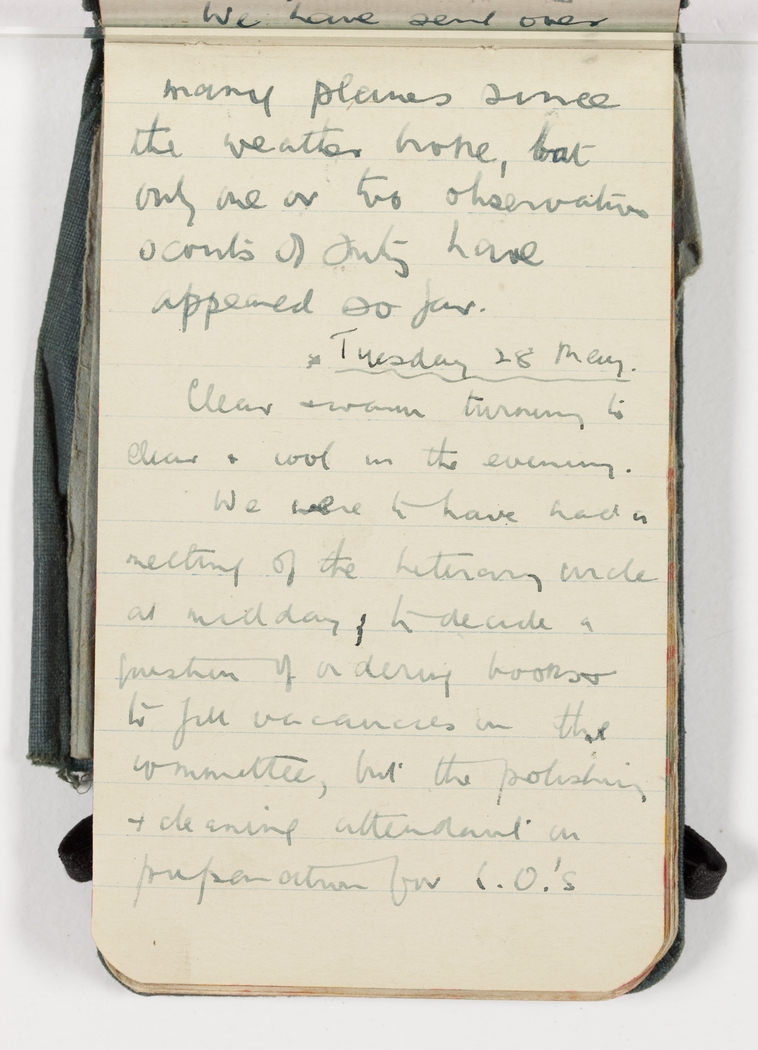 We have sent over
many planes since
the weather broke, but
only one or two observation
scouts of Fritz have
appeared so far.
* Tuesday 28 May.
Clear & warm turning to
clear & cool in the evening.
We were to have had a
meeting of the Literary circle
at midday, to decide a
question of ordering books &
to fill vacancies in the
committee, but the polishing
& cleaning attendant on
preparation for C.O.'s